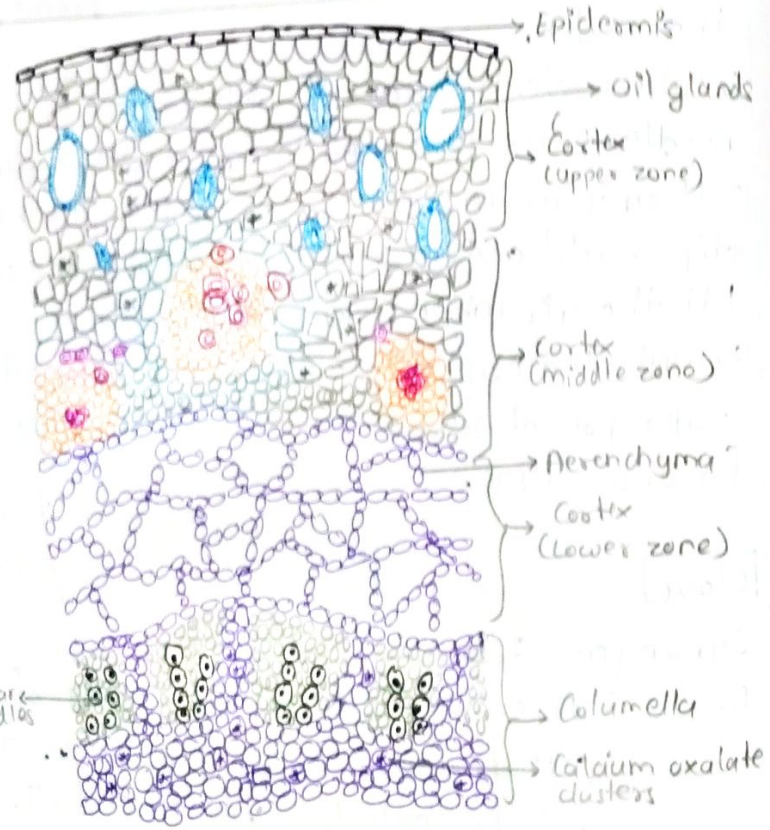 Epidermis
Oil glands
Cortex
(upper zone)
Cortex
(middle zone)
Aerenchyma
Cortex
(Lower zone)
Columella
Calcium oxalate
clusters